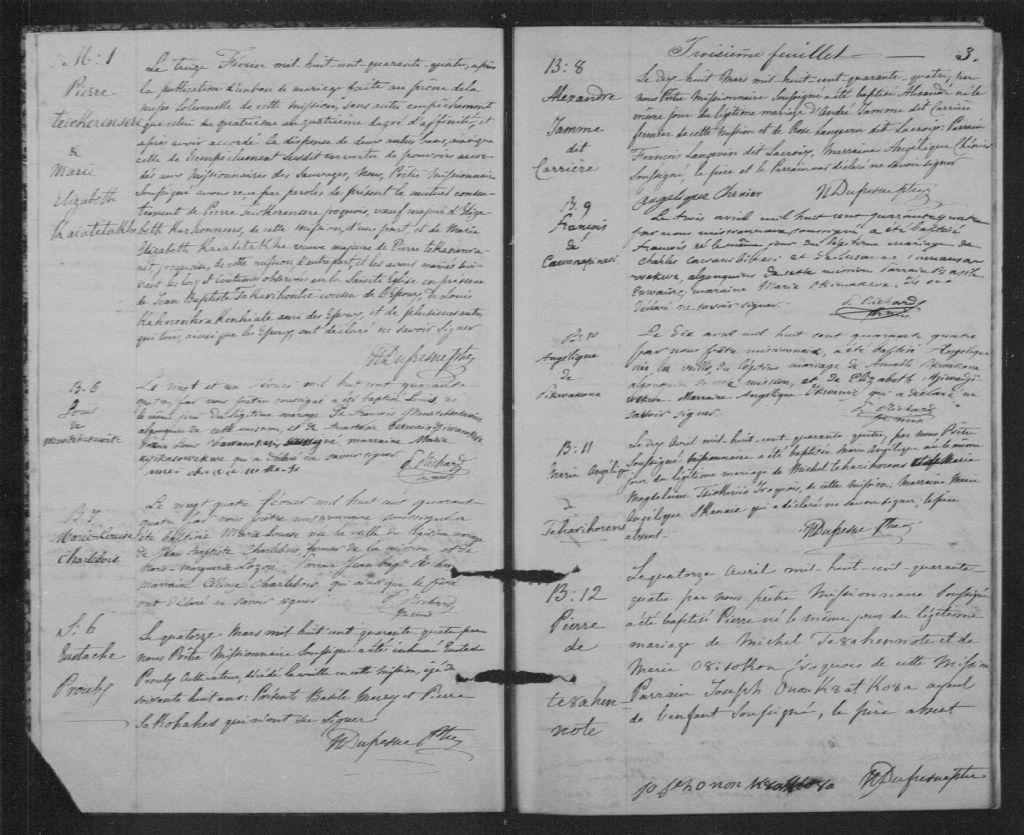 M: 1
Pierre
teiokerensere
&
Marie
Elizabeth
Kaiatitakhe
Le treize Février mil-huit-cent-quarante-quatre, après
la publication d'un ban de mariage faite au prône de la
messe solennelle de cette mission, sans autre empêchement
que celui du quatrième au quatrième degré d'affinité, et
après avoir accordé la dispense de deux autres bans, ainsi que
celle de l'empêchement susdit en vertu de pouvoirs accor-
dés aux Missionnaires des Sauvages, Nous, Prêtre Missionnaire
Soussigné avons reçu par paroles de présent le mutuel consen-
tement de Pierre iroquois, veuf majeur d'Eliza-
beth de cette mission, d'une part, et de Marie
Elizabeth Kaiatitakhe veuve majeure de Pierre
iroquoise, de cette mission d'autre part, et les avons mariés sui-
vant les loix et coutumes observées en la Sainte Eglise en présence
de Jean Baptiste cousin de l'Epouse, de Louis
ami des Epoux, et de plusieurs autres
qui tous, ainsi que les Epoux, ont déclaré ne savoir signer
N Dufresne Ptre
B. 6
Louis
de
Le vingt et un Février mil huit cent quarante
quatre, par nous prêtre soussigné a été baptisé Louis, né
le même jour du légitime mariage de François
algonquin de cette mission, et de Anastasie
Parrain Louis marraine Marie
qui a déclaré ne savoir signer
E. Richard
Ptre miss
B. 7
Marie-Louise
Charlebois
Le vingt quatre février mil huit cent quarante
quatre par nous prêtre missionnaire soussigné a
été baptisée Marie Louise née la veille du légitime mariage
de Jean Baptiste Charlebois, fermier de la mission et de
Marie-Marguerite Lozon. Parrain Jean Bapt
marraine Céline Charlebois, qui ainsi que le père
ont déclaré ne savoir signer
E. Richard
Ptre miss
S: 6
Eustache
Proulx
Le quatorze Mars mil huit cent quarante quatre par
nous Prêtre Missionnaire Soussigné a été inhumé Eustache
Proulx Cultivateur, décédé la veille en cette mission, âgé de
soixante huit ans: Présents Basile Meury et Pierre
Sakokahes qui n'ont su signer
N Dufresne Ptre
Troisième feuillet 3.
B: 8
Alexandre
Jamme
dit
Carrière
Le dix huit Mars mil-huit-cent-quarante-quatre, par
nous Prêtre Missionnaire Soussigné a été baptisé Alexandre né le
même jour du légitime mariage d'André Jamme dit Carrière
fermier de cette mission et de Rose Langevin dit Lacroix: Parrain
François Langevin dit Lacroix, Marraine Angélique Chénier
Soussignée, le père et le Parrain ont déclaré ne savoir signer
Angelique Chenier N Dufresne ptre
B. 9
François
de
Le trois avril mil huit cent quarante quatre
par nous missionnaire soussigné a été baptisé
François né le même jour du légitime mariage de
Charles et de Susanne
algonquins de cette mission Parrain Basile
marraine Marie ils ont
déclaré ne savoir signer.
E. Richard
Ptre miss
B. 10
Angélique
de
Pikwakona
Le dix avril mil huit cent quarante quatre
par nous prêtre missionnaire, a été baptisée Angélique
née la veille, du légitime mariage de Amable Pikwakona
algonquin de cette mission, et de Elizabeth
Marraine Angélique qui a déclaré ne
savoir signer
E. Richard
Ptre miss
B: 11
Marie Angélique
de
Tehorihorens
Le dix Avril mil-huit-cent-quarante quatre, par nous Prêtre
Soussigné Missionnaire a été baptisée Marie Angélique née le même
jour du légitime mariage de Michel teharihorens et de Marie
Magdeleine Iroquois, de cette mission: Marraine Marie
Angélique Skanaie qui a déclaré ne savoir signer, le père
absent.
N Dufresne Ptre
B: 12
Pierre
de
te8ahen-
note
Le quatorze Avril mil-huit-cent-quarante
quatre par nous prêtre Missionnaire Soussigné
a été baptisé Pierre né le même jour du légitime
mariage de Michel Te8ahennote et de
Marie Iroquois de cette Mission
Parrain Joseph Onon ayeul
de l'enfant Soussigné, le père absent
N Dufresne ptre